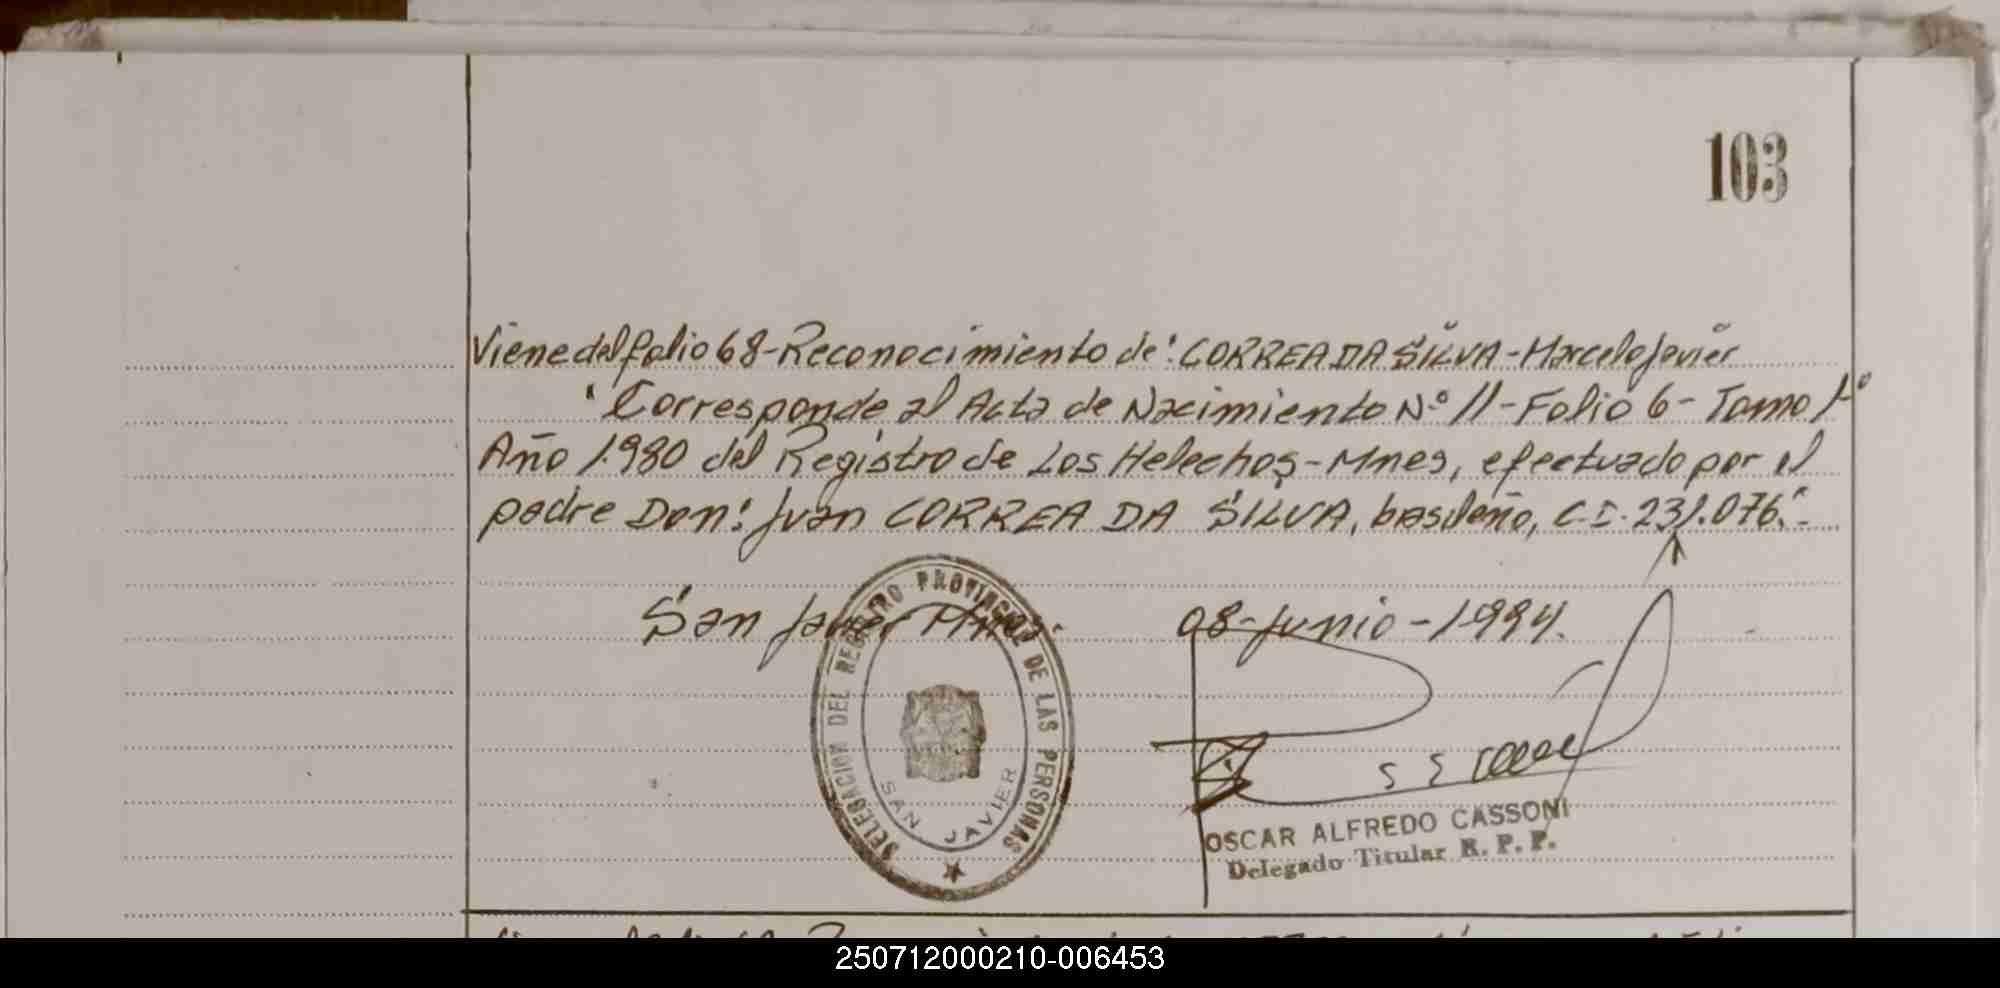 103
Viene del folio 68-Reconocimiento de: CORREA DA SILVA-Marcelo Javier
"Corresponde al Acta de Nacimiento N.º 11-Folio 6- Tomo 1º
Año 1.980 del Registro de Los Helechos-Mnes, efectuado por el
padre Don: Juan CORREA DA SILVA, basileño, C.I. 231.076."-
San Javier Mnes. 08-Junio-1.994.
DELEGACION DEL REGISTRO PROVINCIAL DE LAS PERSONAS
SAN JAVIER
OSCAR ALFREDO CASSONI
Delegado Titular R. P. P.
250712000210-006453